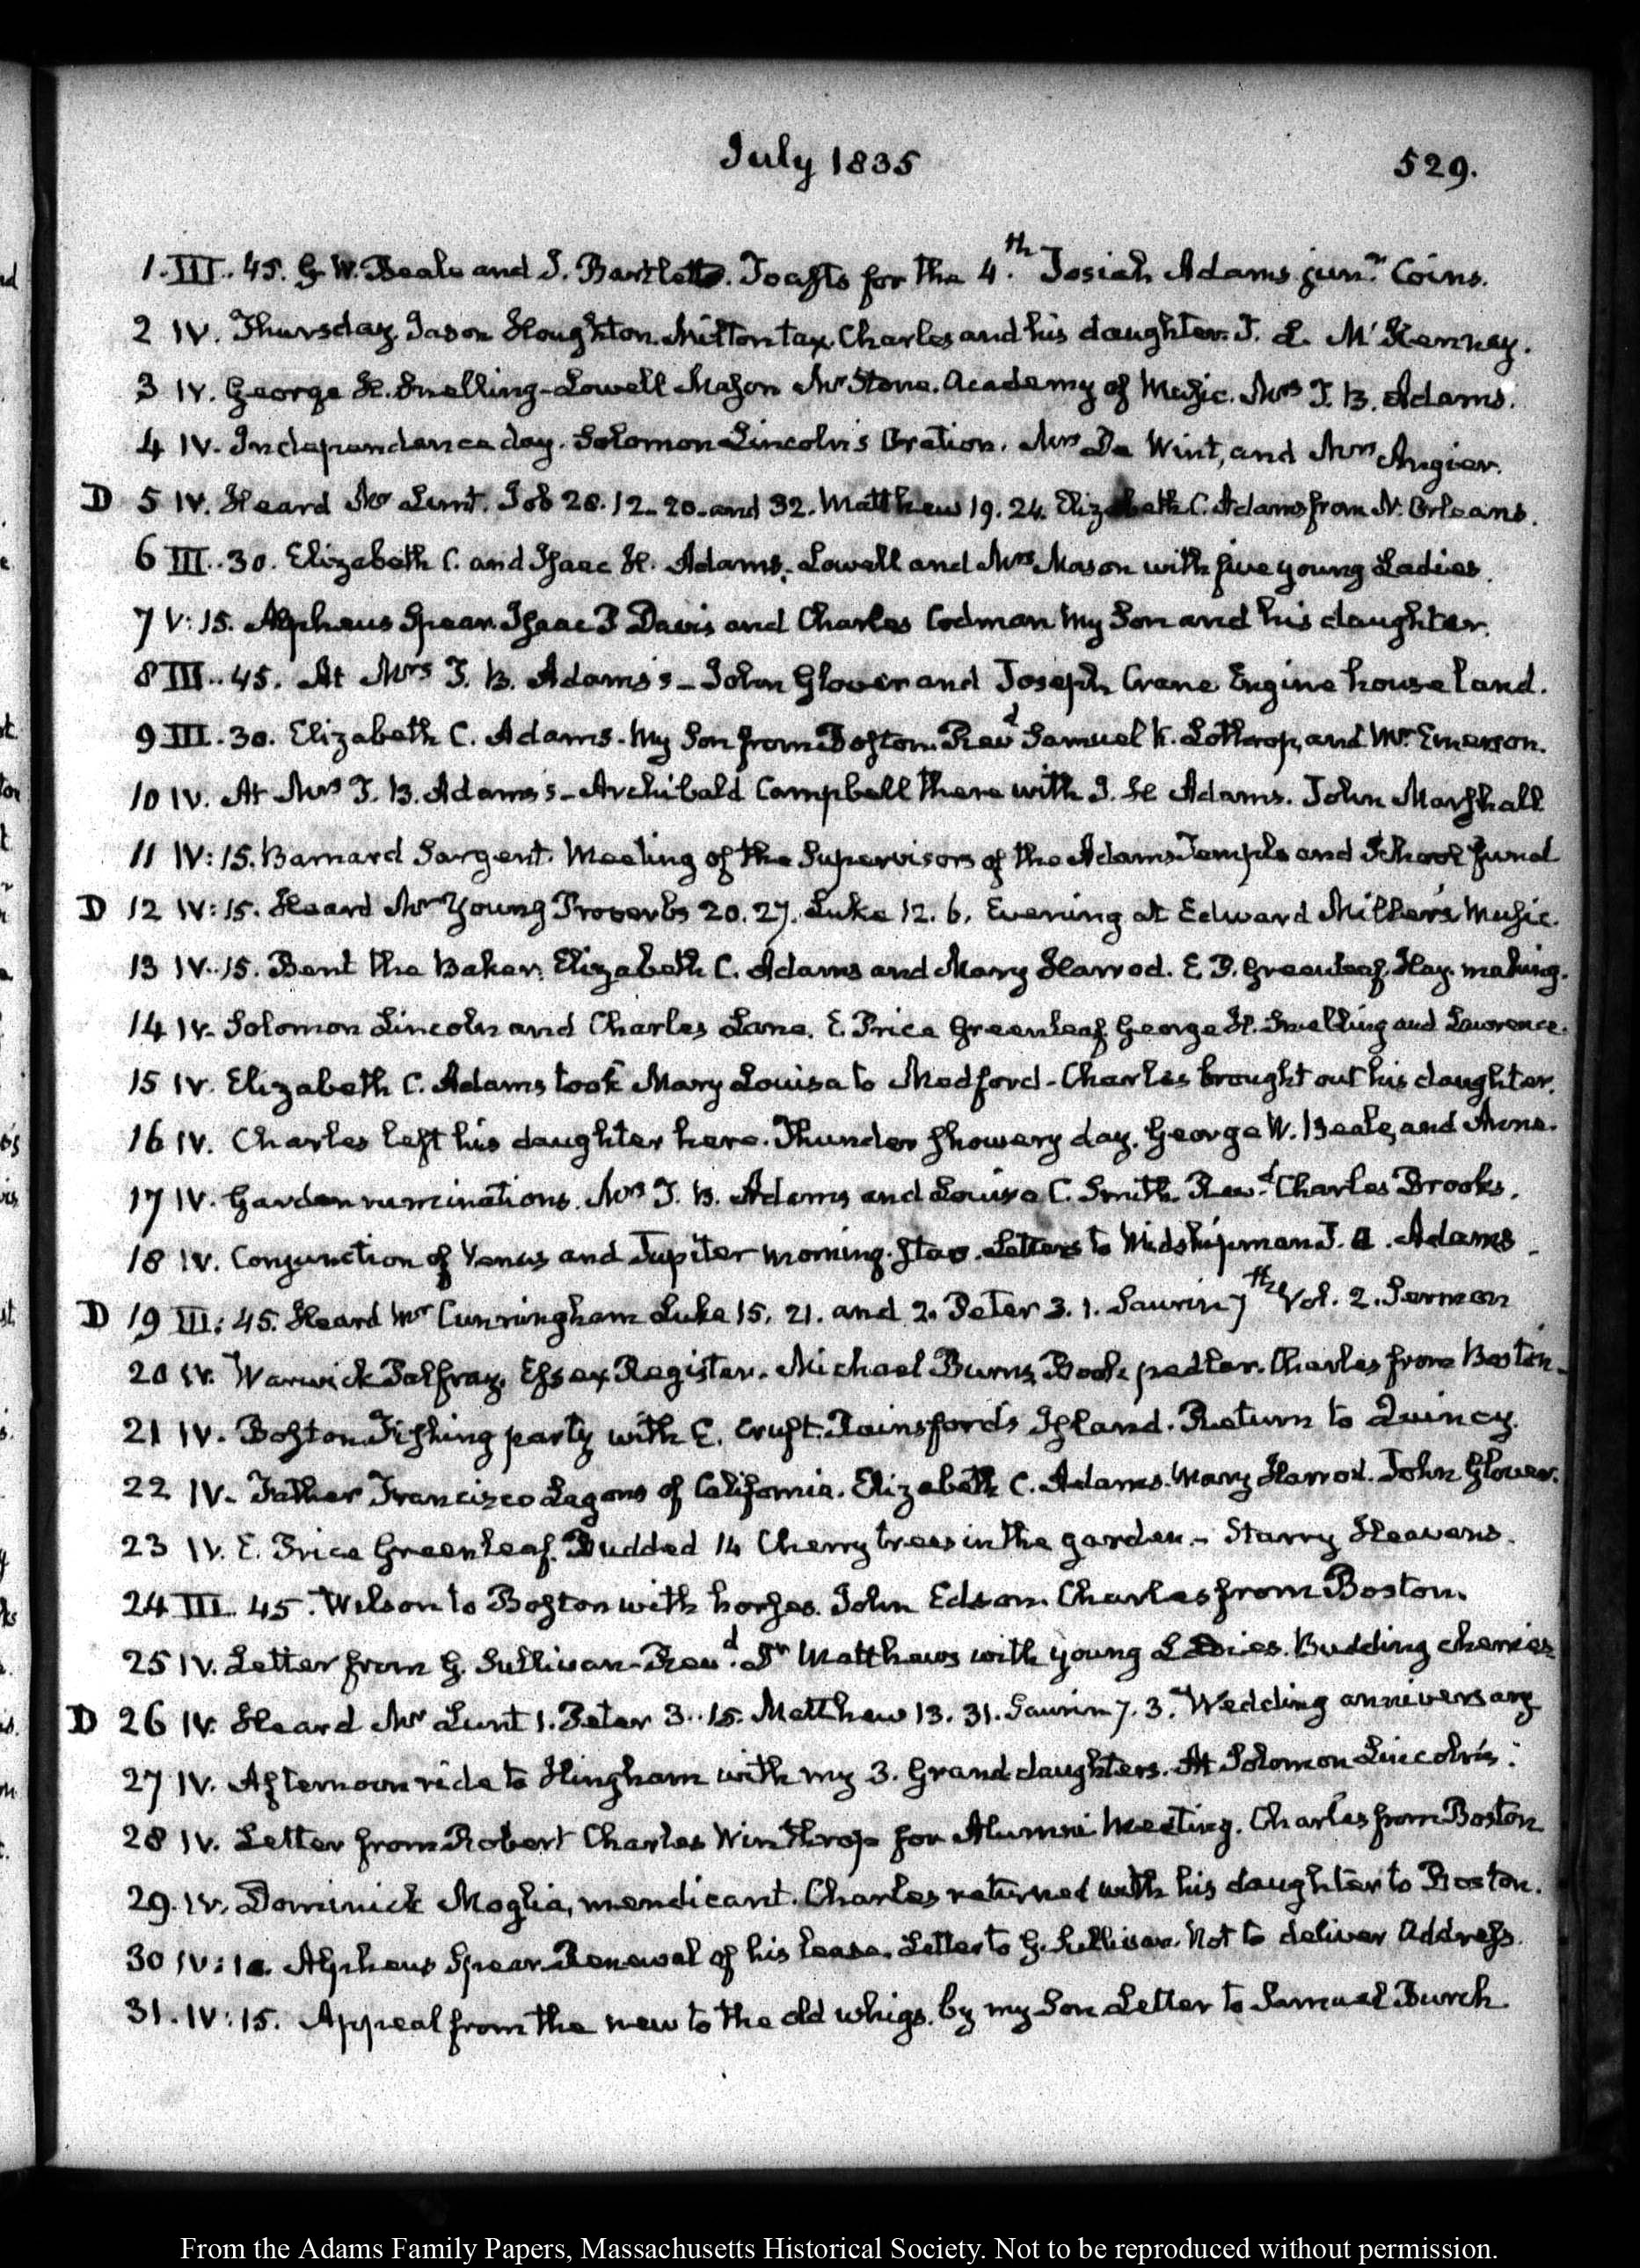 July 1835
529.
1. III.. 45. G. W. Beale and J. Bartlett. Toasts for the 4.th Josiah Adams junr. Coins.
2 IV. Thursday. Jason Houghton. Milton tax. Charles and his daughter. T. L. McKenney.
3 IV. George H. Snelling - Lowell Mason Mr Stone. Academy of Music. Mrs T. B. Adams.
4 IV. Independance day. Solomon Lincoln's Oration. Mrs De Wint, and Mrs Angier.
D 5 IV. Heard Mr Lunt. Job 28. 12-20. and 32. Matthew 19. 24. Elizabeth C. Adams from N. Orleans.
6 III.. 30. Elizabeth C. and Isaac H. Adams. Lowell and Mrs Mason with five young Ladies.
7 V: 15. Alpheus Spear. Isaac P Davis and Charles Codman My Son and his daughter.
8 III.. 45. At Mrs T. B. Adams's - John Glover and Joseph Crane Engine house land.
9 III. 30. Elizabeth C. Adams. My Son from Boston. Revd Samuel K. Lothrop, and Mr Emerson.
10 IV. At Mrs T. B. Adams's - Archibald Campbell there with I. H Adams. John Marshall
11 IV: 15. Barnard Sargent. Meeting of the Supervisors of the Adams Temple and School fund
D 12 IV: 15. Heard Mr Young Proverbs 20. 27. Luke 12. 6. Evening at Edward Miller's Music.
13 IV.. 15. Bent the Baker. Elizabeth C. Adams and Mary Harrod. E P. Greenleaf. Hay making.
14 IV. Solomon Lincoln and Charles Lane. E. Price Greenleaf George H. Snelling and Lawrence.
15 IV. Elizabeth C. Adams took Mary Louisa to Medford - Charles brought out his daughter.
16 IV. Charles left his daughter here. Thunder showery day. George W. Beale, and Anne.
17 IV. Garden ruminations. Mrs T. B. Adams and Louisa C. Smith. Revd. Charles Brooks.
18 IV. Conjunction of Venus and Jupiter morning. Letters to Midshipman J. Q. Adams.
D 19 III: 45. Heard Mr Cunningham Luke 15. 21. and 2. Peter 3. 1. Saurin 7th Vol. 2. Sermon
20 IV. Warwick Palfray, Essex Register. Michael Burns, Book pedler. Charles from Boston.
21 IV. Boston Fishing party with E. Cruft. Rainsford's Island. Return to Quincy.
22 IV. Father Francisco of California. Elizabeth C. Adams. Mary Harrod. John Glover.
23 IV. E. Price Greenleaf. Budded 14 Cherry trees in the garden. - Starry Heavens.
24 III. 45. Wilson to Boston with horses. John Edson. Charles from Boston.
25 IV. Letter from G. Sullivan - Revd. Dr Matthews with young Ladies. Budding cherries
D 26 IV. Heard Mr Lunt 1. Peter 3.. 15. Matthew 13. 31. Saurin 7. 3. Wedding anniversary
27 IV. Afternoon ride to Hingham with my 3. Grand daughters. At Solomon Lincoln's.
28 IV. Letter from Robert Charles Winthrop for Alumni Meeting. Charles from Boston
29. IV. Dominick Moglia, mendicant. Charles returned with his daughter to Boston.
30 IV: Alpheus Spear. Renewal of his lease. Letter to G. Sullivan. Not to deliver Address.
31. IV: 15. Appeal from the new to the old whigs. by my Son Letter to Samuel Burch
From the Adams Family Papers, Massachusetts Historical Society. Not to be reproduced without permission.